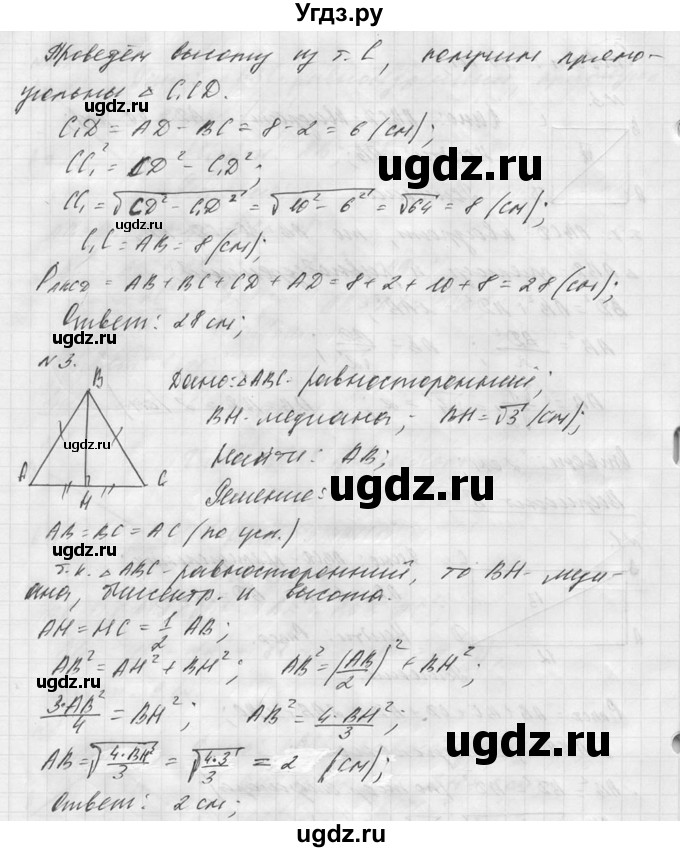 Угдз.ру
Проведём высоту из т. C, получим прямо-
угольный △ C₁CD.
C₁D = AD − BC = 8 − 2 = 6 (см);
CC₁² = CD² − C₁D²;
CC₁ = √(CD² − C₁D²) = √(10² − 6²) = √64 = 8 (см);
C₁C = AB = 8 (см);
P_ABCD = AB + BC + CD + AD = 8 + 2 + 10 + 8 = 28 (см);
Ответ: 28 см;
№3.
B
A H C
Дано: △ABC - равносторонний;
BH - медиана; BH = √3 (см);
Найти: AB;
Решение:
AB = BC = AC (по усл.)
Т.к. △ABC - равносторонний, то BH - меди-
ана, биссектр. и высота.
AH = HC = 1/2 AB;
AB² = AH² + BH²; AB² = (AB/2)² + BH²;
3·AB²/4 = BH²; AB² = 4·BH²/3;
AB = √(4·BH²/3) = √(4·3/3) = 2 (см);
Ответ: 2 см;
ugdz.ru
ugdz.ru
ugdz.ru
ugdz.ru
ugdz.ru
ugdz.ru
ugdz.ru
ugdz.ru
ugdz.ru
ugdz.ru
ugdz.ru
ugdz.ru